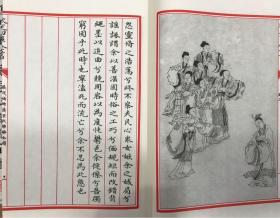 怨靈脩之浩蕩兮終不察夫民心衆女嫉余之蛾眉兮
謠諑謂余以善淫固時俗之工巧兮偭規矩而改錯背
繩墨以追曲兮競周容以為度忳鬱邑余侘傺兮吾獨
窮困乎此時也寧溘死而流亡兮余不忍為此態也